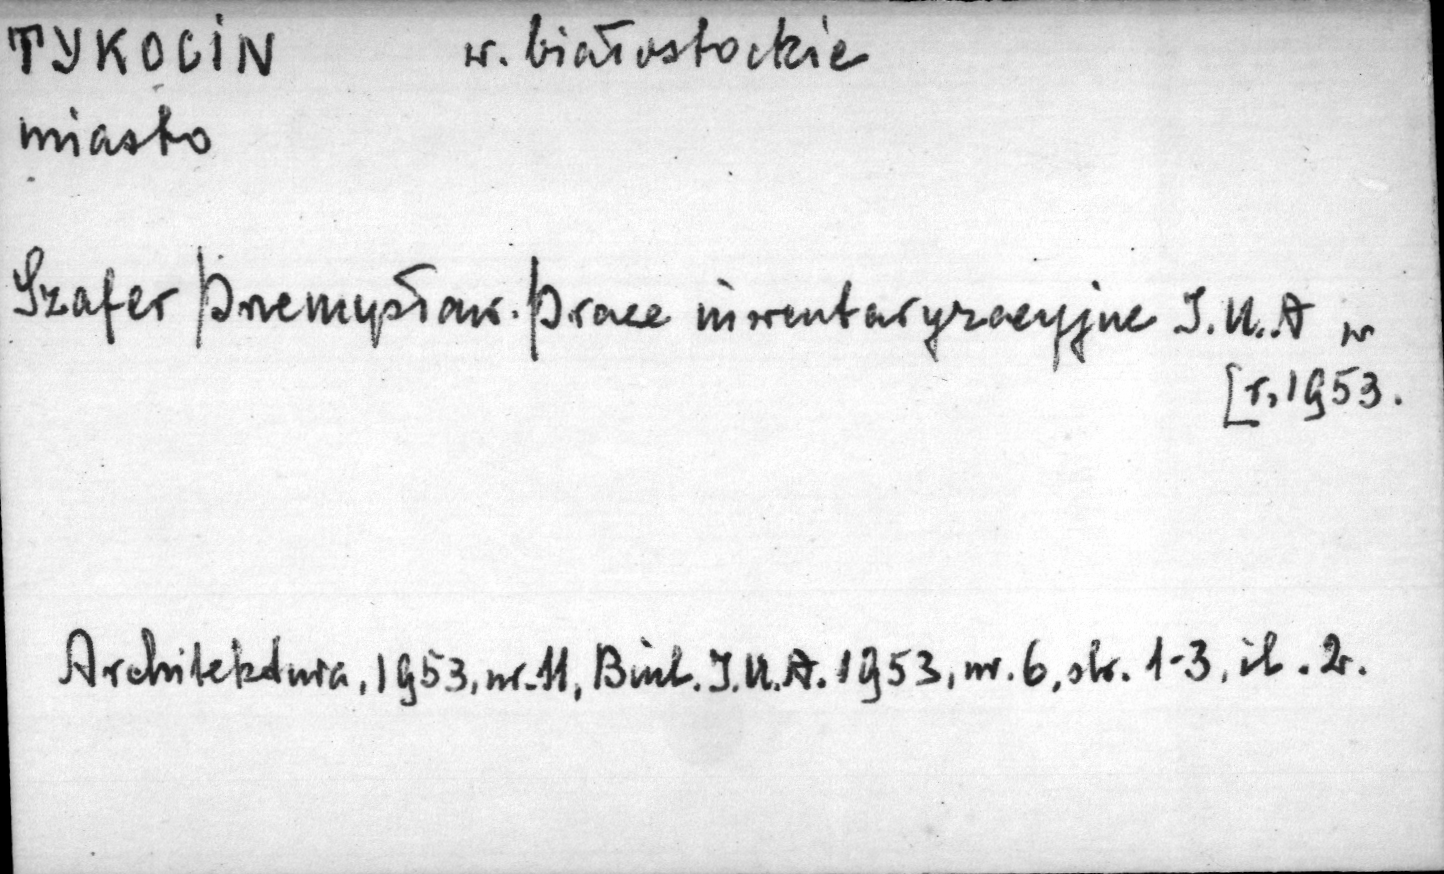 TYKOCIN w. białostockie
miasto
Szafer Przemysław. Prace inwentaryzacyjne I.U.A w
[r. 1953.
Architektura, 1953, nr. 11, Biul. I.U.A. 1953, nr. 6, str. 1-3, il. 2.